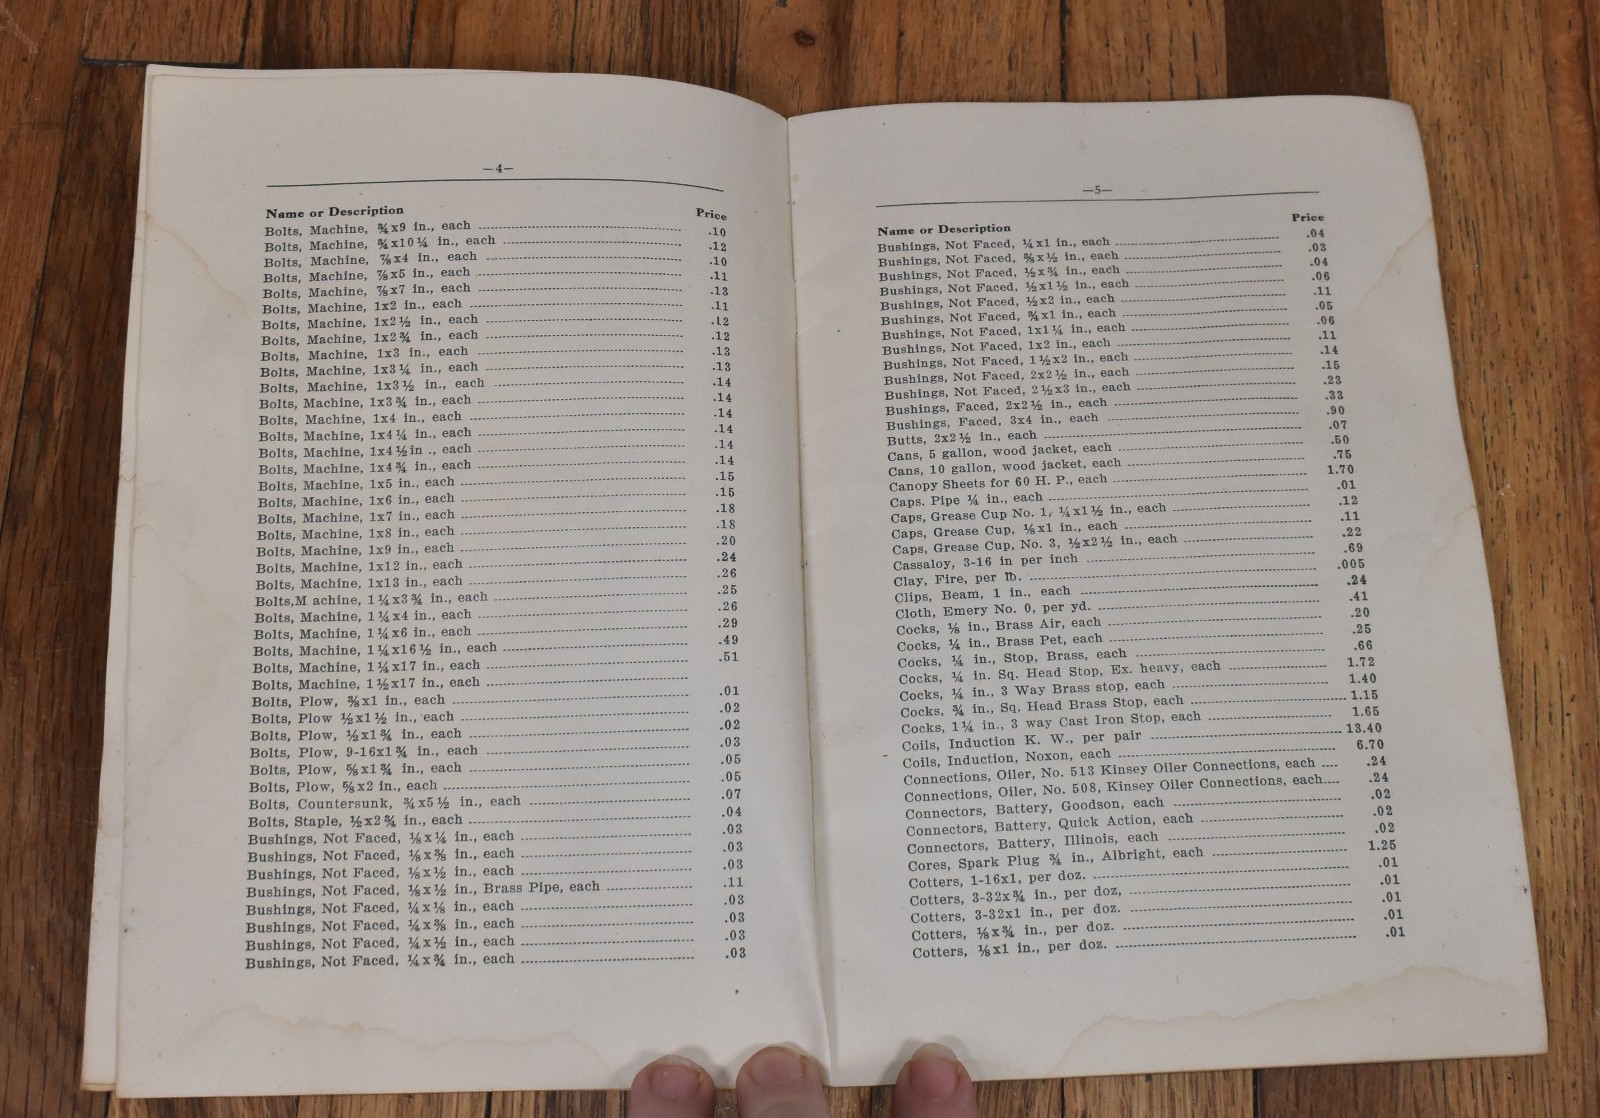 —4—
Name or Description Price
Bolts, Machine, ¾x9 in., each .10
Bolts, Machine, ¾x10¼ in., each .12
Bolts, Machine, ⅞x4 in., each .10
Bolts, Machine, ⅞x5 in., each .11
Bolts, Machine, ⅞x7 in., each .13
Bolts, Machine, 1x2 in., each .11
Bolts, Machine, 1x2½ in., each .12
Bolts, Machine, 1x2¾ in., each .12
Bolts, Machine, 1x3 in., each .13
Bolts, Machine, 1x3¼ in., each .13
Bolts, Machine, 1x3½ in., each .14
Bolts, Machine, 1x3¾ in., each .14
Bolts, Machine, 1x4 in., each .14
Bolts, Machine, 1x4¼ in., each .14
Bolts, Machine, 1x4½in ., each .14
Bolts, Machine, 1x4¾ in., each .14
Bolts, Machine, 1x5 in., each .15
Bolts, Machine, 1x6 in., each .15
Bolts, Machine, 1x7 in., each .18
Bolts, Machine, 1x8 in., each .18
Bolts, Machine, 1x9 in., each .20
Bolts, Machine, 1x12 in., each .24
Bolts, Machine, 1x13 in., each .26
Bolts,M achine, 1¼x3¾ in., each .25
Bolts, Machine, 1¼x4 in., each .26
Bolts, Machine, 1¼x6 in., each .29
Bolts, Machine, 1¼x16½ in., each .49
Bolts, Machine, 1¼x17 in., each .51
Bolts, Machine, 1½x17 in., each
Bolts, Plow, ⅜x1 in., each .01
Bolts, Plow ½x1½ in., each .02
Bolts, Plow, ½x1¾ in., each .02
Bolts, Plow, 9-16x1¾ in., each .03
Bolts, Plow, ⅝x1¾ in., each .05
Bolts, Plow, ⅝x2 in., each .05
Bolts, Countersunk, ¾x5½ in., each .07
Bolts, Staple, ½x2¾ in., each .04
Bushings, Not Faced, ⅛x¼ in., each .03
Bushings, Not Faced, ⅛x⅜ in., each .03
Bushings, Not Faced, ⅛x½ in., each .03
Bushings, Not Faced, ⅛x½ in., Brass Pipe, each .11
Bushings, Not Faced, ¼x⅛ in., each .03
Bushings, Not Faced, ¼x⅜ in., each .03
Bushings, Not Faced, ¼x½ in., each .03
Bushings, Not Faced, ¼x¾ in., each .03
—5—
Name or Description Price
Bushings, Not Faced, ¼x1 in., each .04
Bushings, Not Faced, ⅜x½ in., each .03
Bushings, Not Faced, ½x¾ in., each .04
Bushings, Not Faced, ½x1½ in., each .06
Bushings, Not Faced, ½x2 in., each .11
Bushings, Not Faced, ¾x1 in., each .05
Bushings, Not Faced, 1x1¼ in., each .06
Bushings, Not Faced, 1x2 in., each .11
Bushings, Not Faced, 1½x2 in., each .14
Bushings, Not Faced, 2x2½ in., each .15
Bushings, Not Faced, 2½x3 in., each .23
Bushings, Faced, 2x2½ in., each .33
Bushings, Faced, 3x4 in., each .90
Butts, 2x2½ in., each .07
Cans, 5 gallon, wood jacket, each .50
Cans, 10 gallon, wood jacket, each .75
Canopy Sheets for 60 H. P., each 1.70
Caps. Pipe ¼ in., each .01
Caps, Grease Cup No. 1, ¼x1½ in., each .12
Caps, Grease Cup, ⅛x1 in., each .11
Caps, Grease Cup, No. 3, ½x2½ in., each .22
Cassaloy, 3-16 in per inch .69
Clay, Fire, per lb. .005
Clips, Beam, 1 in., each .24
Cloth, Emery No. 0, per yd. .41
Cocks, ⅛ in., Brass Air, each .20
Cocks, ¼ in., Brass Pet, each .25
Cocks, ¼ in., Stop, Brass, each .66
Cocks, ¼ in. Sq. Head Stop, Ex. heavy, each 1.72
Cocks, ¼ in., 3 Way Brass stop, each 1.40
Cocks, ¾ in., Sq. Head Brass Stop, each 1.15
Cocks, 1¼ in., 3 way Cast Iron Stop, each 1.65
Coils, Induction K. W., per pair 13.40
Coils, Induction, Noxon, each 6.70
Connections, Oiler, No. 513 Kinsey Oiler Connections, each .24
Connections, Oiler, No. 508, Kinsey Oiler Connections, each .24
Connectors, Battery, Goodson, each .02
Connectors, Battery, Quick Action, each .02
Connectors, Battery, Illinois, each .02
Cores, Spark Plug ¾ in., Albright, each 1.25
Cotters, 1-16x1, per doz. .01
Cotters, 3-32x¾ in., per doz, .01
Cotters, 3-32x1 in., per doz. .01
Cotters, ⅛x¾ in., per doz. .01
Cotters, ⅛x1 in., per doz. .01